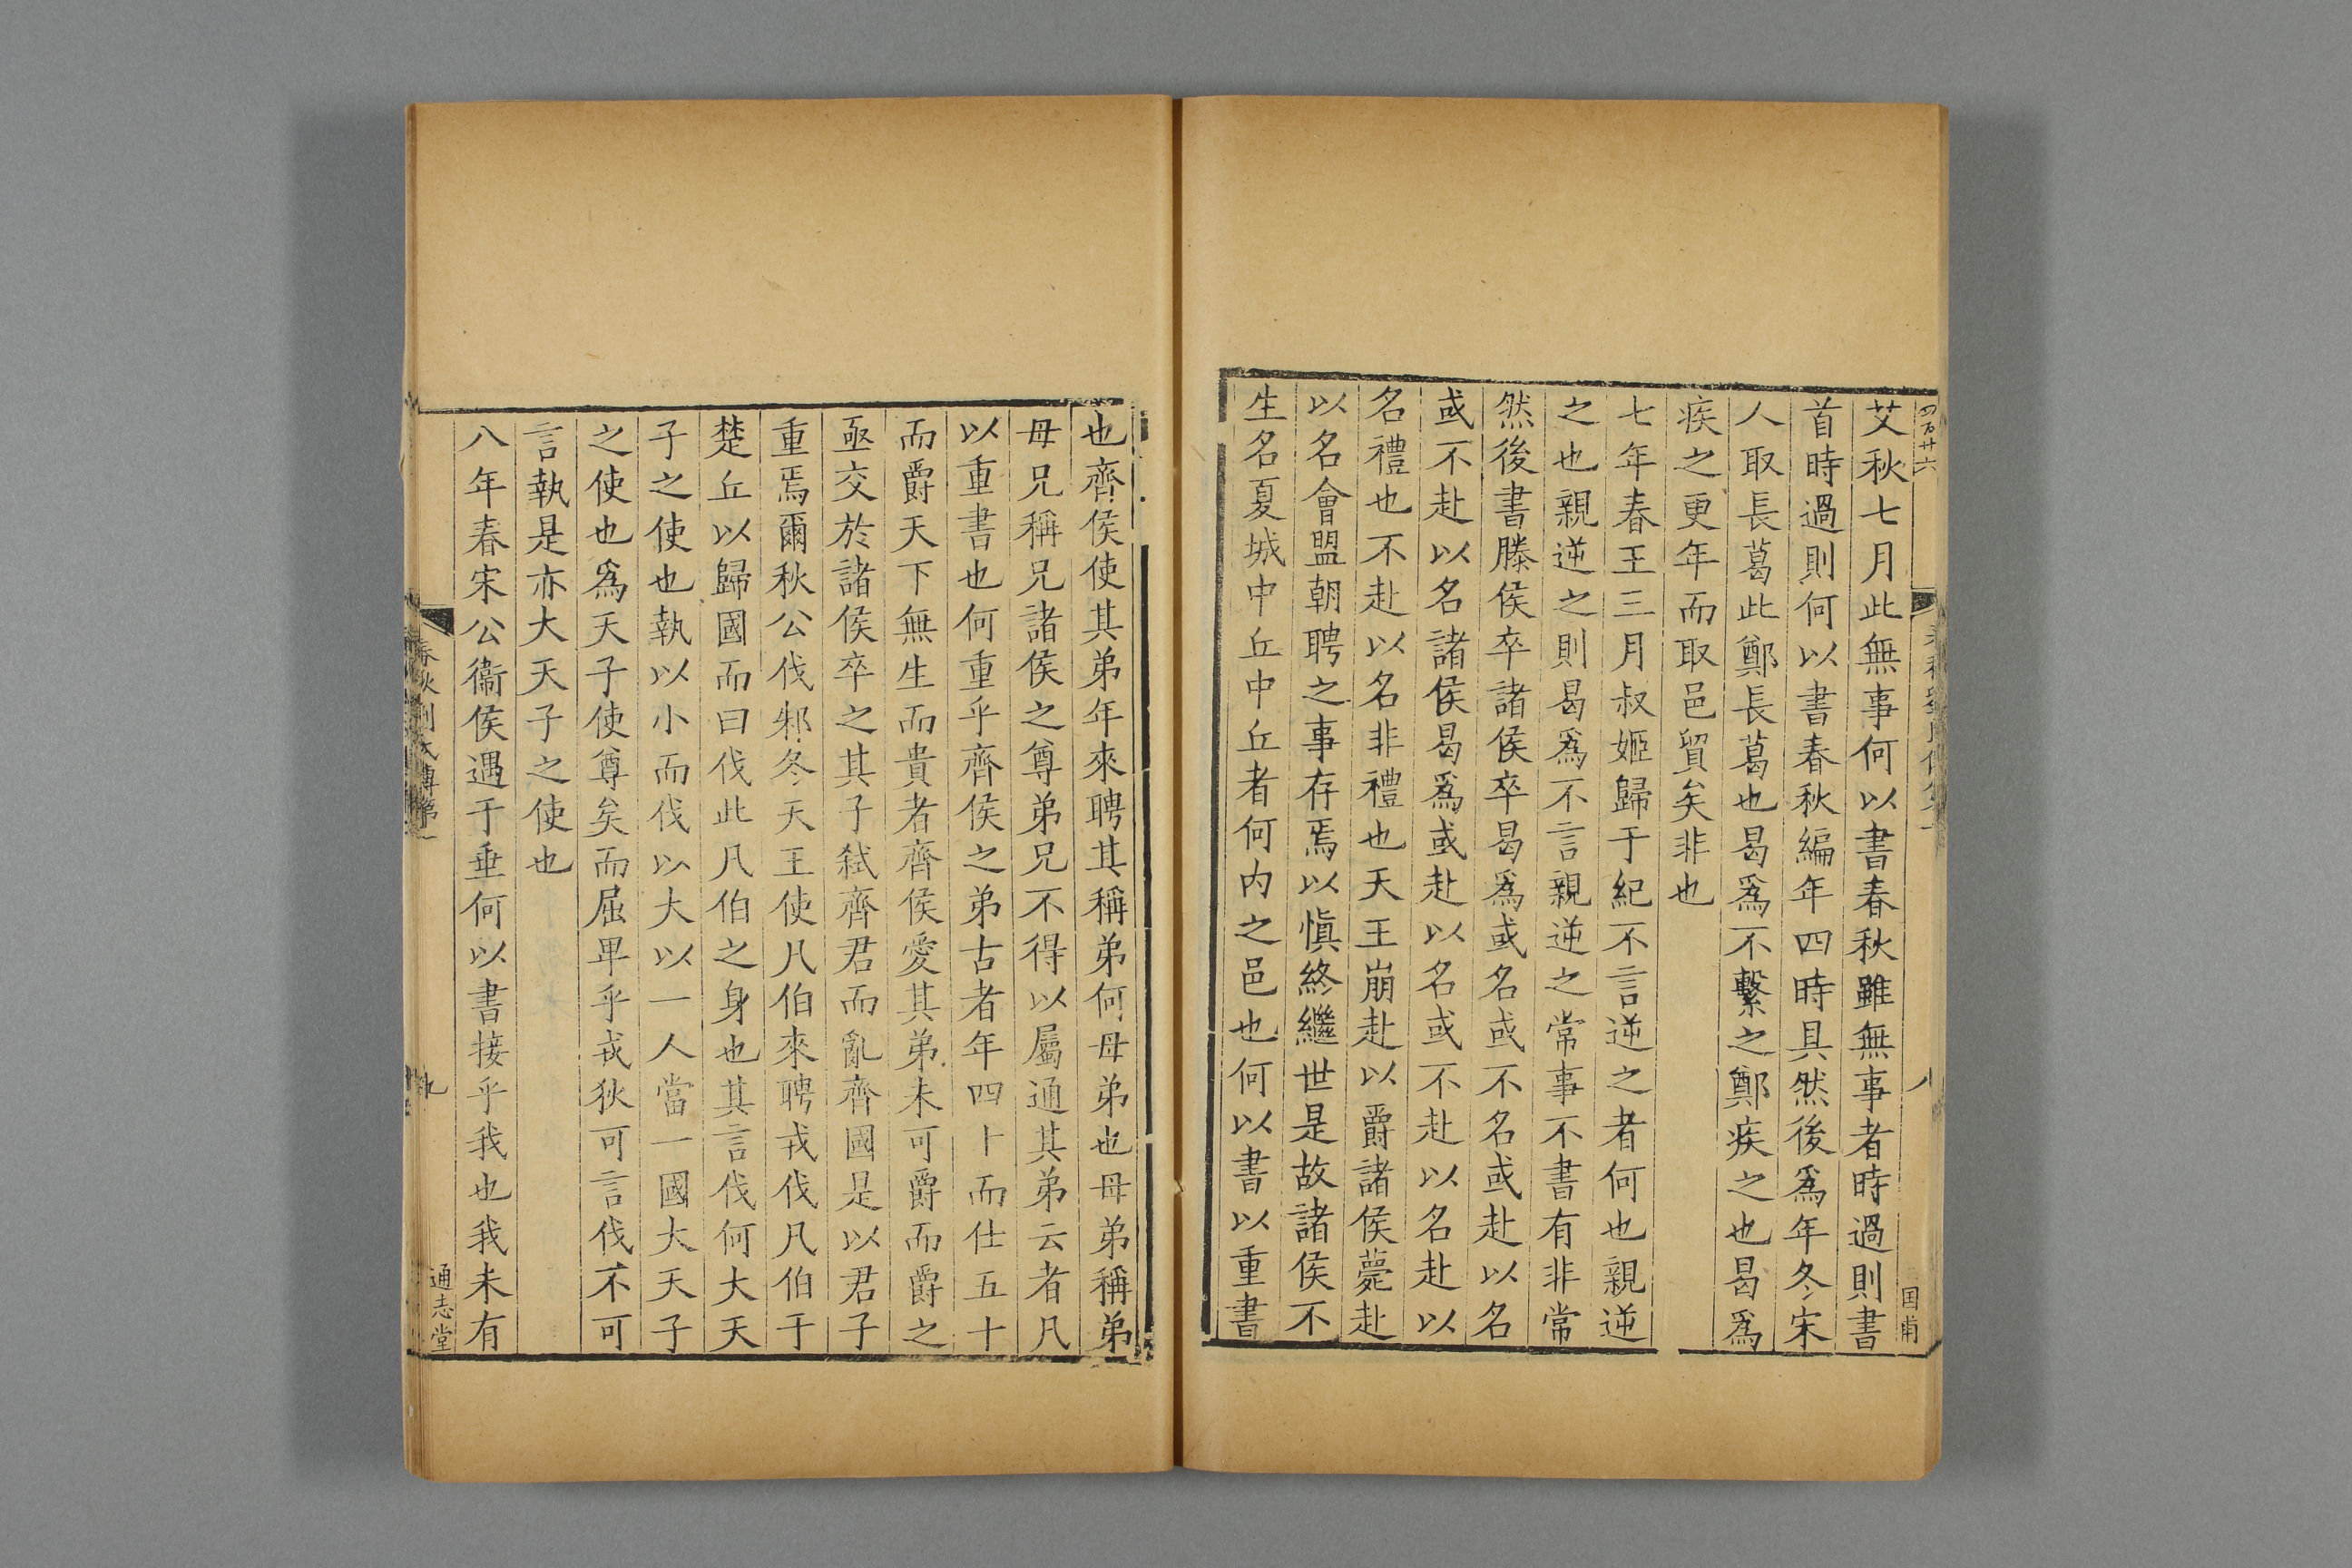 四百廿六
八
国甫
艾秋七月此無事何以書春秋雖無事者時過則書
首時過則何以書春秋編年四時具然後爲年冬宋
人取長葛此鄭長葛也曷爲不繫之鄭疾之也曷爲
疾之更年而取邑貿矣非也
七年春王三月叔姬歸于紀不言逆之者何也親逆
之也親逆之則曷爲不言親逆之常事不書有非常
然後書滕侯卒諸侯卒曷爲或名或不名或赴以名
或不赴以名諸侯曷爲或赴以名或不赴以名赴以
名禮也不赴以名非禮也天王崩赴以爵諸侯薨赴
以名會盟朝聘之事存焉以愼終繼世是故諸侯不
生名夏城中丘中丘者何内之邑也何以書以重書
也齊侯使其弟年來聘其稱弟何母弟也母弟稱弟
母兄稱兄諸侯之尊弟兄不得以屬通其弟云者凡
以重書也何重乎齊侯之弟古者年四十而仕五十
而爵天下無生而貴者齊侯愛其弟未可爵而爵之
亟交於諸侯卒之其子弒齊君而亂齊國是以君子
重焉爾秋公伐邾冬天王使凡伯來聘戎伐凡伯于
楚丘以歸國而曰伐此凡伯之身也其言伐何大天
子之使也執以小而伐以大以一人當一國大天子
之使也爲天子使尊矣而屈卑乎戎狄可言伐不可
言執是亦大天子之使也
八年春宋公衞侯遇于垂何以書接乎我也我未有
春秋劉氏傳第一
九
通志堂